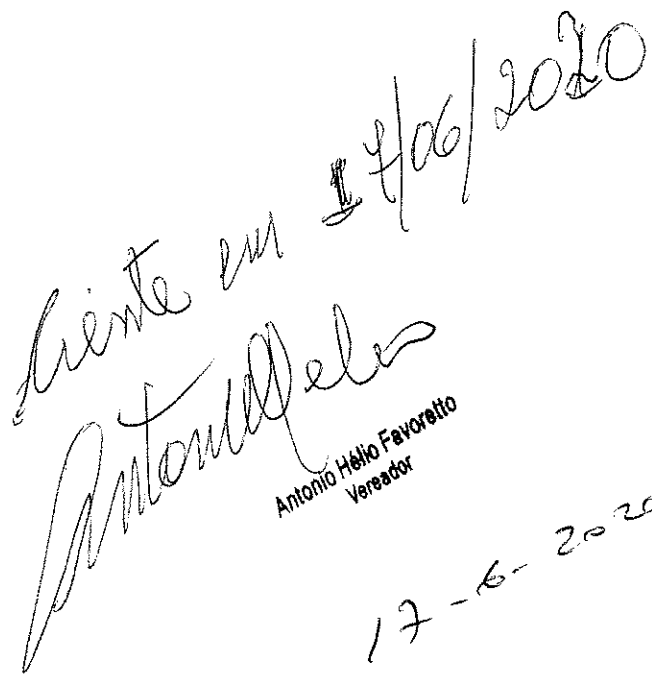 Ciente em 17/06/2020
Antonio Helio
Antonio Hélio Favoretto
Vereador
17-6-2020